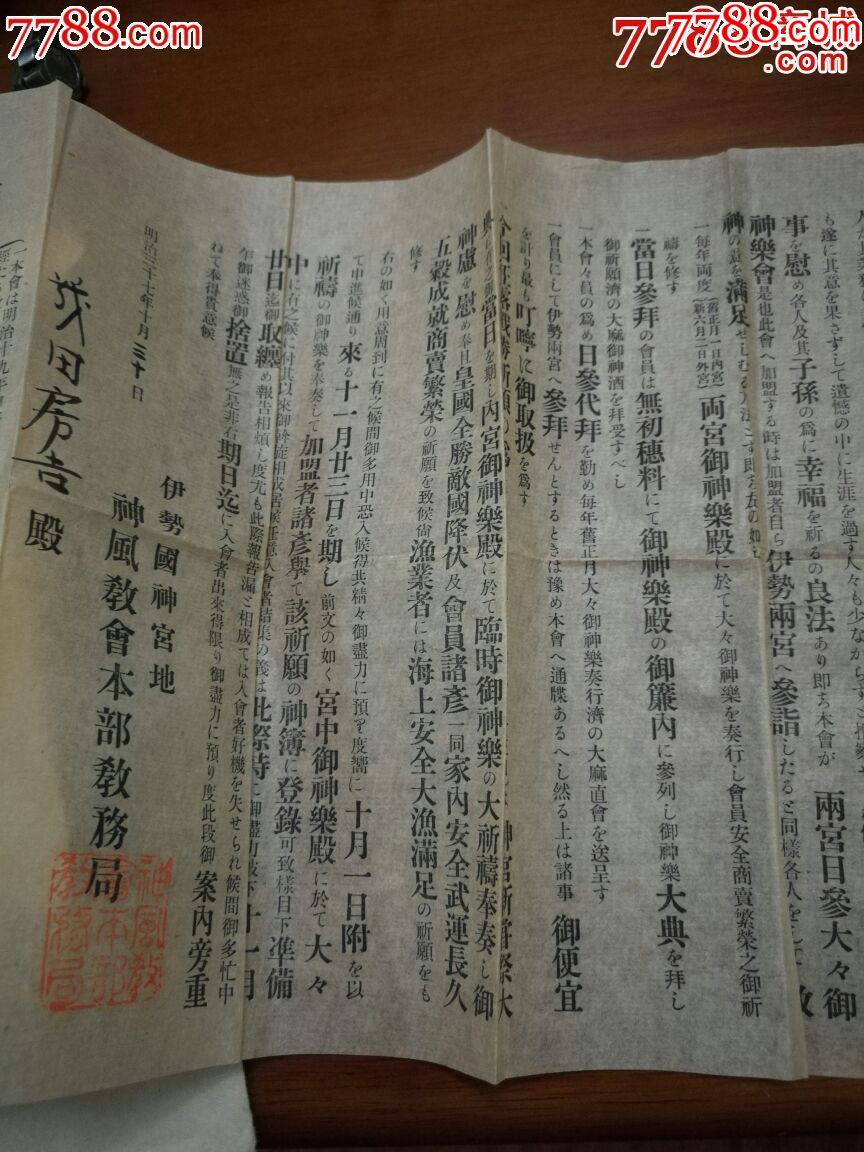 7788.com
7788.com
7788商城
も遂に其意を果さずして遺憾の中に生涯を過す人々も少なからず
事を慰め各人及其子孫の爲に幸福を祈るの良法あり即ち本會が 兩宮日參大々御
神樂會是也此會へ加盟する時は加盟者自ら伊勢兩宮へ參詣したると同樣各人をして
神の意を滿足せしむる 即ち左の如し
一每年兩度(舊正月一日內宮)(新六月二日外宮)兩宮御神樂殿に於て大々御神樂を奏行し會員安全商賣繁榮之御祈
禱を修す
一當日參拜の會員は無初穗料にて御神樂殿の御簾內に參列し御神樂大典を拜し
御祈願濟の大麻御神酒を拜受すべし
一本會々員の爲め日參代拜を勤め每年舊正月大々御神樂奏行濟の大麻直會を送呈す
一會員にして伊勢兩宮へ參拜せんとするときは豫め本會へ通牒あるへし然る上は諸事 御便宜
を計り最も叮嚀に御取扱を爲す
今回征露戰勝祈願の爲 神宮新嘗祭大
典に有之 當日を期し內宮御神樂殿に於て臨時御神樂の大祈禱奉奏し御
神慮を慰め奉且皇國全勝敵國降伏及會員諸彥一同家內安全武運長久
五穀成就商賣繁榮の祈願を致候尙漁業者には海上安全大漁滿足の祈願をも
修す
右の如く用意周到に有之候間御多用中恐入候得共精々御盡力に預り度嚮に十月一日附を以
て申進候通り來る十一月廿三日を期し前文の如く宮中御神樂殿に於て大々
祈禱の御神樂を奉奏して加盟者諸彥擧て該祈願の神簿に登錄可致樣目下準備
中に有之候に付其以來御斡旋相成居候任意入會者結集の義は此際特に御盡力被下十一月
廿日迄御取纏め報告相煩し度尤も此際報告漏と相成ては入會者好機を失せられ候間御多忙中
年御迷惑御捨置無之是非右期日迄に入會者出來得限り御盡力に預り度此段御案內旁重
ねて奉得貴意候
明治三十七年十月三十日
伊勢國神宮地
神風敎會本部敎務局
神風敎會本部敎務局
茂田房吉殿
(一本會は明治十九年